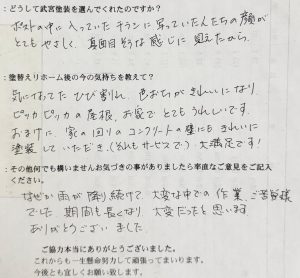 ：どうして武宮塗装を選んでくれたのですか？
ポストの中に入っていたチラシに写っていた人たちの顔が
とてもやさしく、真面目そうな感じに見えたから。
：塗替えリホーム後の今の気持ちを教えて？
気になってた ひび割れ、色おちがきれいになり
ピッカピッカの屋根、お家で とてもうれしいです。
おまけに、家の回りのコンクリートの塀にもきれいに
塗装していただき、(んもサービスで) 大満足です！
：その他何でも構いませんお気づきの事がありましたら率直なご意見をご記入
ください。
なぜか雨が降り続けて、大変な中での作業、ご苦労様
でした。期間も長くなり、大変だったと思います
ありがとうございました。
ご協力本当にありがとうございました。
これからも一生懸命努力して頑張ってまいります。
今後も宜しくお願い致します。